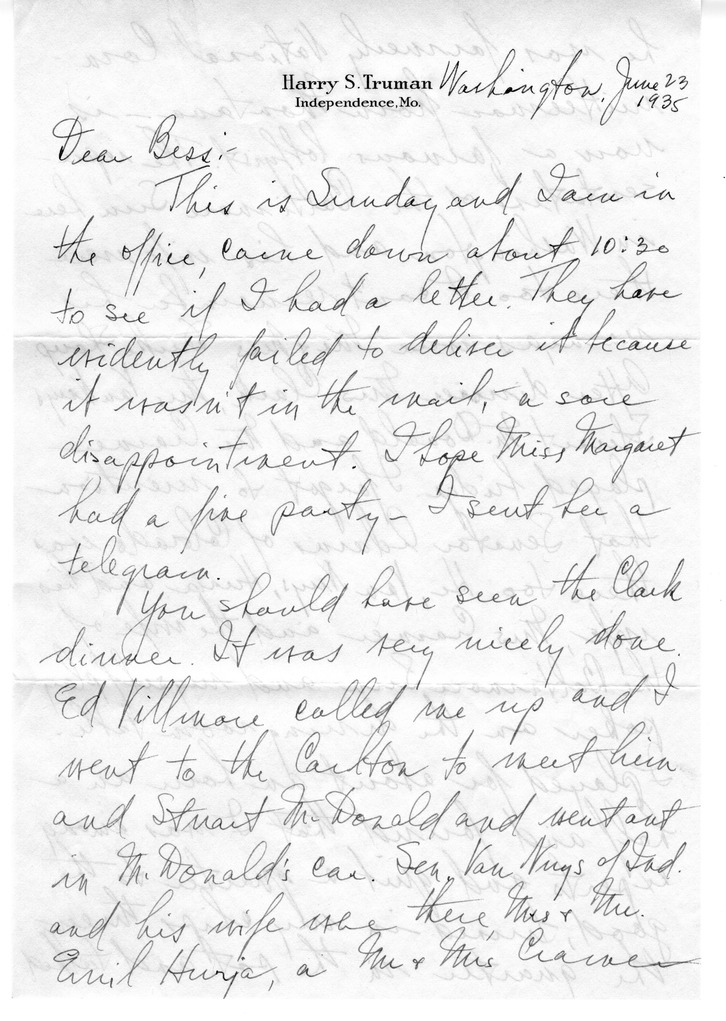 Harry S. Truman Washington, June 23
Independence, Mo. 1935
Dear Bess:-
This is Sunday and I am in
the office, came down about 10:30
to see if I had a letter. They have
evidently failed to deliver it because
it wasn't in the mail,- a sore
disappointment. I hope Miss Margaret
had a fine party - I sent her a
telegram.
You should have seen the Clark
dinner. It was very nicely done.
Ed Villmore called me up and I
went to the Carlton to meet him
and Stuart McDonald and went out
in McDonald's car. Sen. Van Nuys of Ind.
and his wife were there, Mrs & Mr.
Emil Hurja, a Mr & Mrs Craver